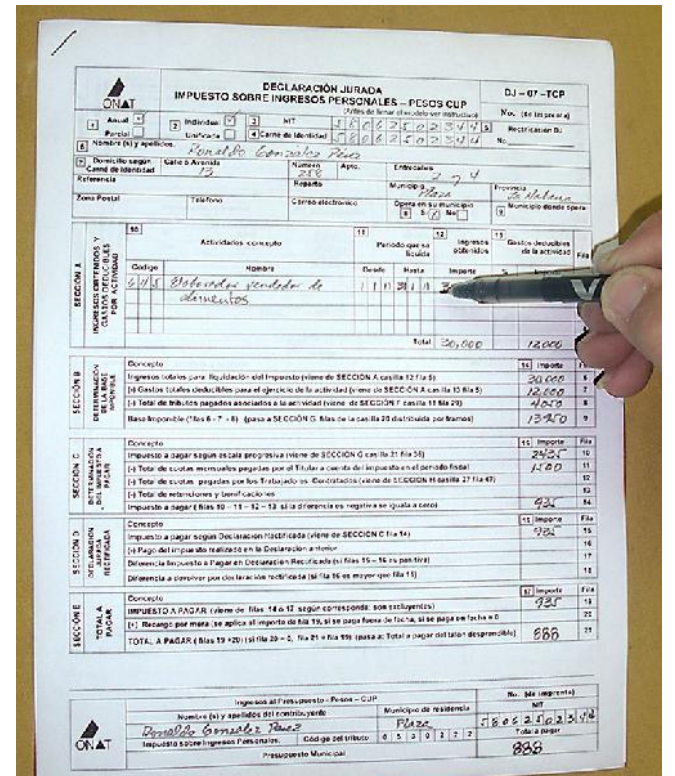 DECLARACIÓN JURADA
IMPUESTO SOBRE INGRESOS PERSONALES – PESOS CUP
(Antes de llenar el modelo ver instructivo)
DJ – 07 –TCP
No. (de imprenta)
ONAT
1 Anual
Parcial
2 Individual
Unificada
3 NIT 58062502344
4 Carné de Identidad 58062502344
5 Rectificación DJ
No.
6 Nombre (s) y apellidos. Ronaldo Gonzalez Pérez
7 Domicilio según Carné de Identidad
Calle o Avenida 13
Número 258
Apto.
Entrecalles 2 y 4
Referencia
Reparto
Municipio Plaza
Provincia La Habana
Zona Postal
Teléfono
Correo electrónico
Opera en su municipio
8 Si No
9 Municipio donde opera
SECCIÓN A
INGRESOS OBTENIDOS Y GASTOS DEDUCIBLES POR ACTIVIDAD
10 Actividades concepto
11 Periodo que se liquida
12 Ingresos obtenidos
13 Gastos deducibles de la actividad
Fila
Código Nombre Desde Hasta Importe %
645 Elaborador vendedor de
alimentos
Total 30,000 12,000
SECCIÓN B
DETERMINACIÓN DE LA BASE IMPONIBLE
Concepto 14 Importe
Ingresos totales para liquidación del Impuesto (viene de SECCIÓN A casilla 12 fila 5) 30,000 6
(-) Gastos totales deducibles para el ejercicio de la actividad (viene de SECCIÓN A casilla 13 fila 5) 12,000 7
(-) Total de tributos pagados asociados a la actividad (viene de SECCIÓN F casilla 18 fila 29) 4050 8
Base Imponible (filas 6 - 7 - 8) (pasa a SECCIÓN G filas de la casilla 20 distribuida por tramos) 13950 9
SECCIÓN C
DETERMINACIÓN DEL IMPUESTO A PAGAR
Concepto 15 Importe Fila
Impuesto a pagar según escala progresiva (viene de SECCIÓN G casilla 21 fila 36) 2435 10
(-) Total de cuotas mensuales pagadas por el Titular a cuenta del impuesto en el período fiscal 1500 11
(-) Total de cuotas pagadas por los Trabajadores Contratados (viene de SECCIÓN H casilla 27 fila 47) 12
(-) Total de retenciones y bonificaciones 13
Impuesto a pagar (filas 10 – 11 – 12 – 13 si la diferencia es negativa se iguala a cero) 935 14
SECCIÓN D
DECLARACIÓN JURADA RECTIFICADA
Concepto 16 Importe Fila
Impuesto a pagar según Declaración Rectificada (viene de SECCIÓN C fila 14) 935 15
(-) Pago del impuesto realizado en la Declaración anterior 16
Diferencia Impuesto a Pagar en Declaración Rectificada (si filas 15 – 16 es positiva) 17
Diferencia a devolver por declaración rectificada (si fila 16 es mayor que fila 15) 18
SECCIÓN E
TOTAL A PAGAR
Concepto 17 Importe Fila
IMPUESTO A PAGAR (viene de filas 14 ó 17 según corresponda: son excluyentes) 935 19
(+) Recargo por mora (se aplica al importe de fila 19, si se paga fuera de fecha, si se paga en fecha = 0 20
TOTAL A PAGAR (filas 19 +20) (si fila 20 = 0, fila 21 = fila 19) (pasa a: Total a pagar del talón desprendible) 888 21
Ingresos al Presupuesto - Pesos – CUP
No. (de imprenta)
Nombre (s) y apellidos del contribuyente
Municipio de residencia
NIT
Ronaldo Gonzalez Pérez
Plaza
58062502344
ONAT
Impuesto sobre Ingresos Personales.
Código del tributo
Total a pagar
Presupuesto Municipal
888